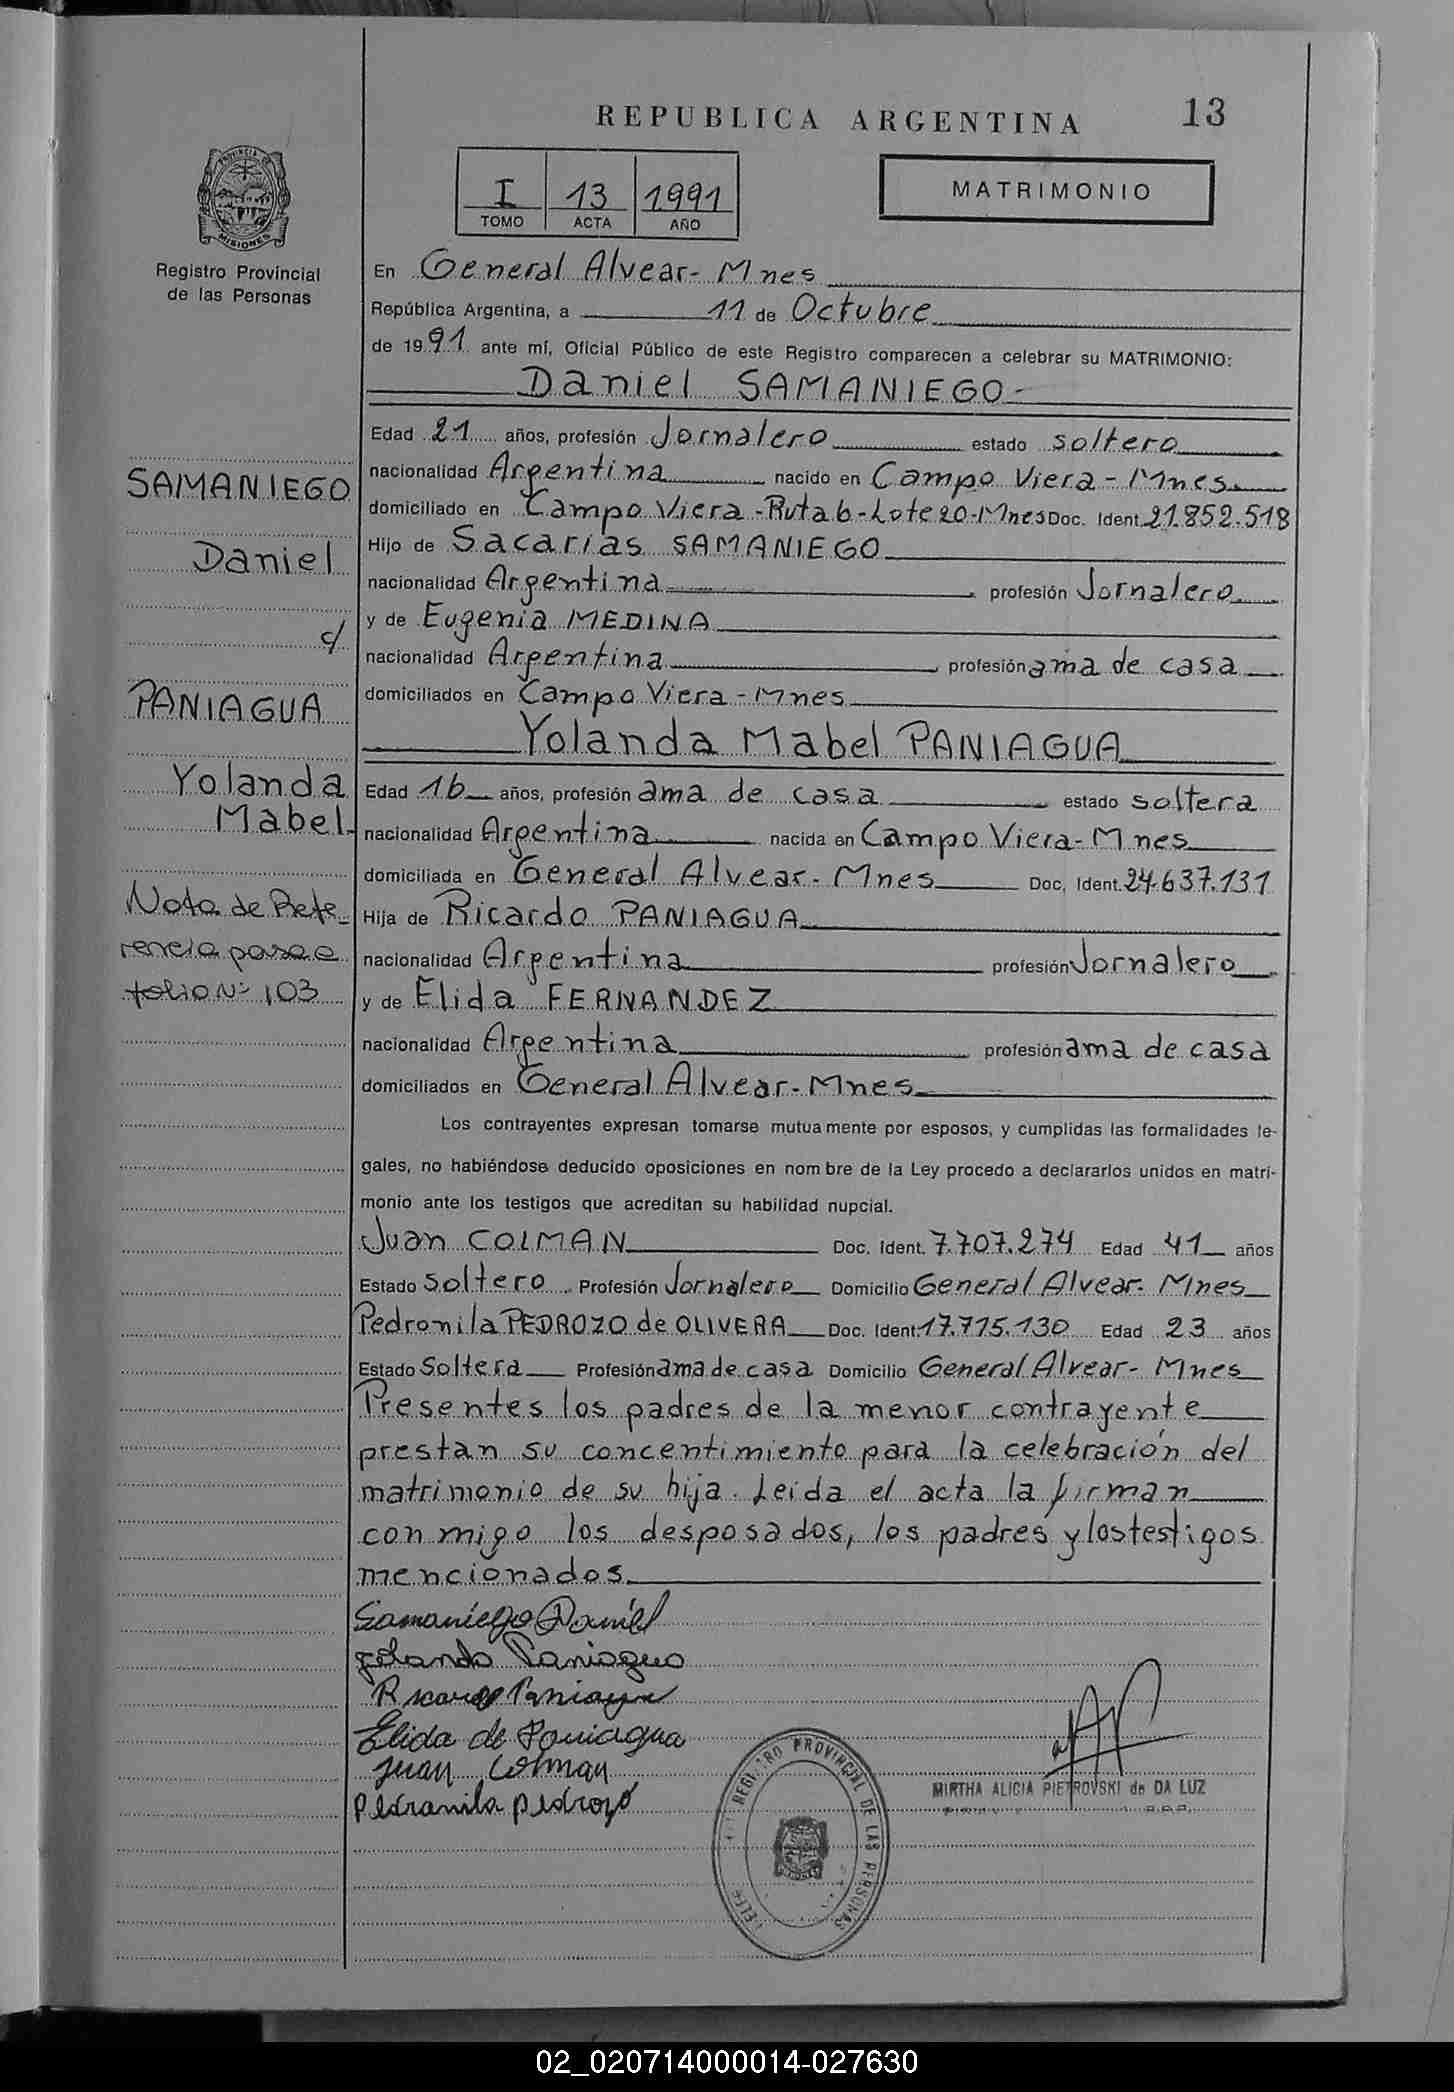 REPUBLICA ARGENTINA 13
I 13 1991
TOMO ACTA AÑO
MATRIMONIO
PROVINCIA DE MISIONES
Registro Provincial
de las Personas
En General Alvear- Mnes
República Argentina, a 11 de Octubre
de 1991 ante mí, Oficial Público de este Registro comparecen a celebrar su MATRIMONIO:
Daniel SAMANIEGO-
Edad 21 años, profesión Jornalero estado soltero
nacionalidad Argentina nacido en Campo Viera - Mnes
domiciliado en Campo Viera -Ruta 6-Lote 20-Mnes Doc. Ident. 21.852.518
Hijo de Sacarias SAMANIEGO
nacionalidad Argentina profesión Jornalero
y de Eugenia MEDINA
nacionalidad Argentina profesión ama de casa
domiciliados en Campo Viera - Mnes
Yolanda Mabel PANIAGUA
Edad 16 años, profesión ama de casa estado soltera
nacionalidad Argentina nacida en Campo Viera- Mnes
domiciliada en General Alvear- Mnes Doc. Ident. 24.637.131
Hija de Ricardo PANIAGUA
nacionalidad Argentina profesión Jornalero
y de Elida FERNANDEZ
nacionalidad Argentina profesión ama de casa
domiciliados en General Alvear-Mnes
Los contrayentes expresan tomarse mutuamente por esposos, y cumplidas las formalidades le-
gales, no habiéndose deducido oposiciones en nombre de la Ley procedo a declararlos unidos en matri-
monio ante los testigos que acreditan su habilidad nupcial.
Juan COLMAN Doc. Ident. 7.707.274 Edad 41 años
Estado soltero Profesión Jornalero Domicilio General Alvear- Mnes
Pedronila PEDROZO de OLIVERA Doc. Ident. 17.715.130 Edad 23 años
Estado Soltera Profesión ama de casa Domicilio General Alvear- Mnes
Presentes los padres de la menor contrayente
prestan su concentimiento para la celebración del
matrimonio de su hija. Leida el acta la firman
conmigo los desposados, los padres y los testigos
mencionados
Samaniego Daniel
Yolanda Paniagua
Ricardo Paniagua
Elida de Paniagua
Juan Colman
Pedranila Pedrozo
REGISTRO PROVINCIAL DE LAS PERSONAS
MIRTHA ALICIA PIETROVSKI de DA LUZ
SAMANIEGO
Daniel
c/
PANIAGUA
Yolanda
Mabel-
Nota de Refe-
rencia pasa a
folio Nº 103
02_020714000014-027630